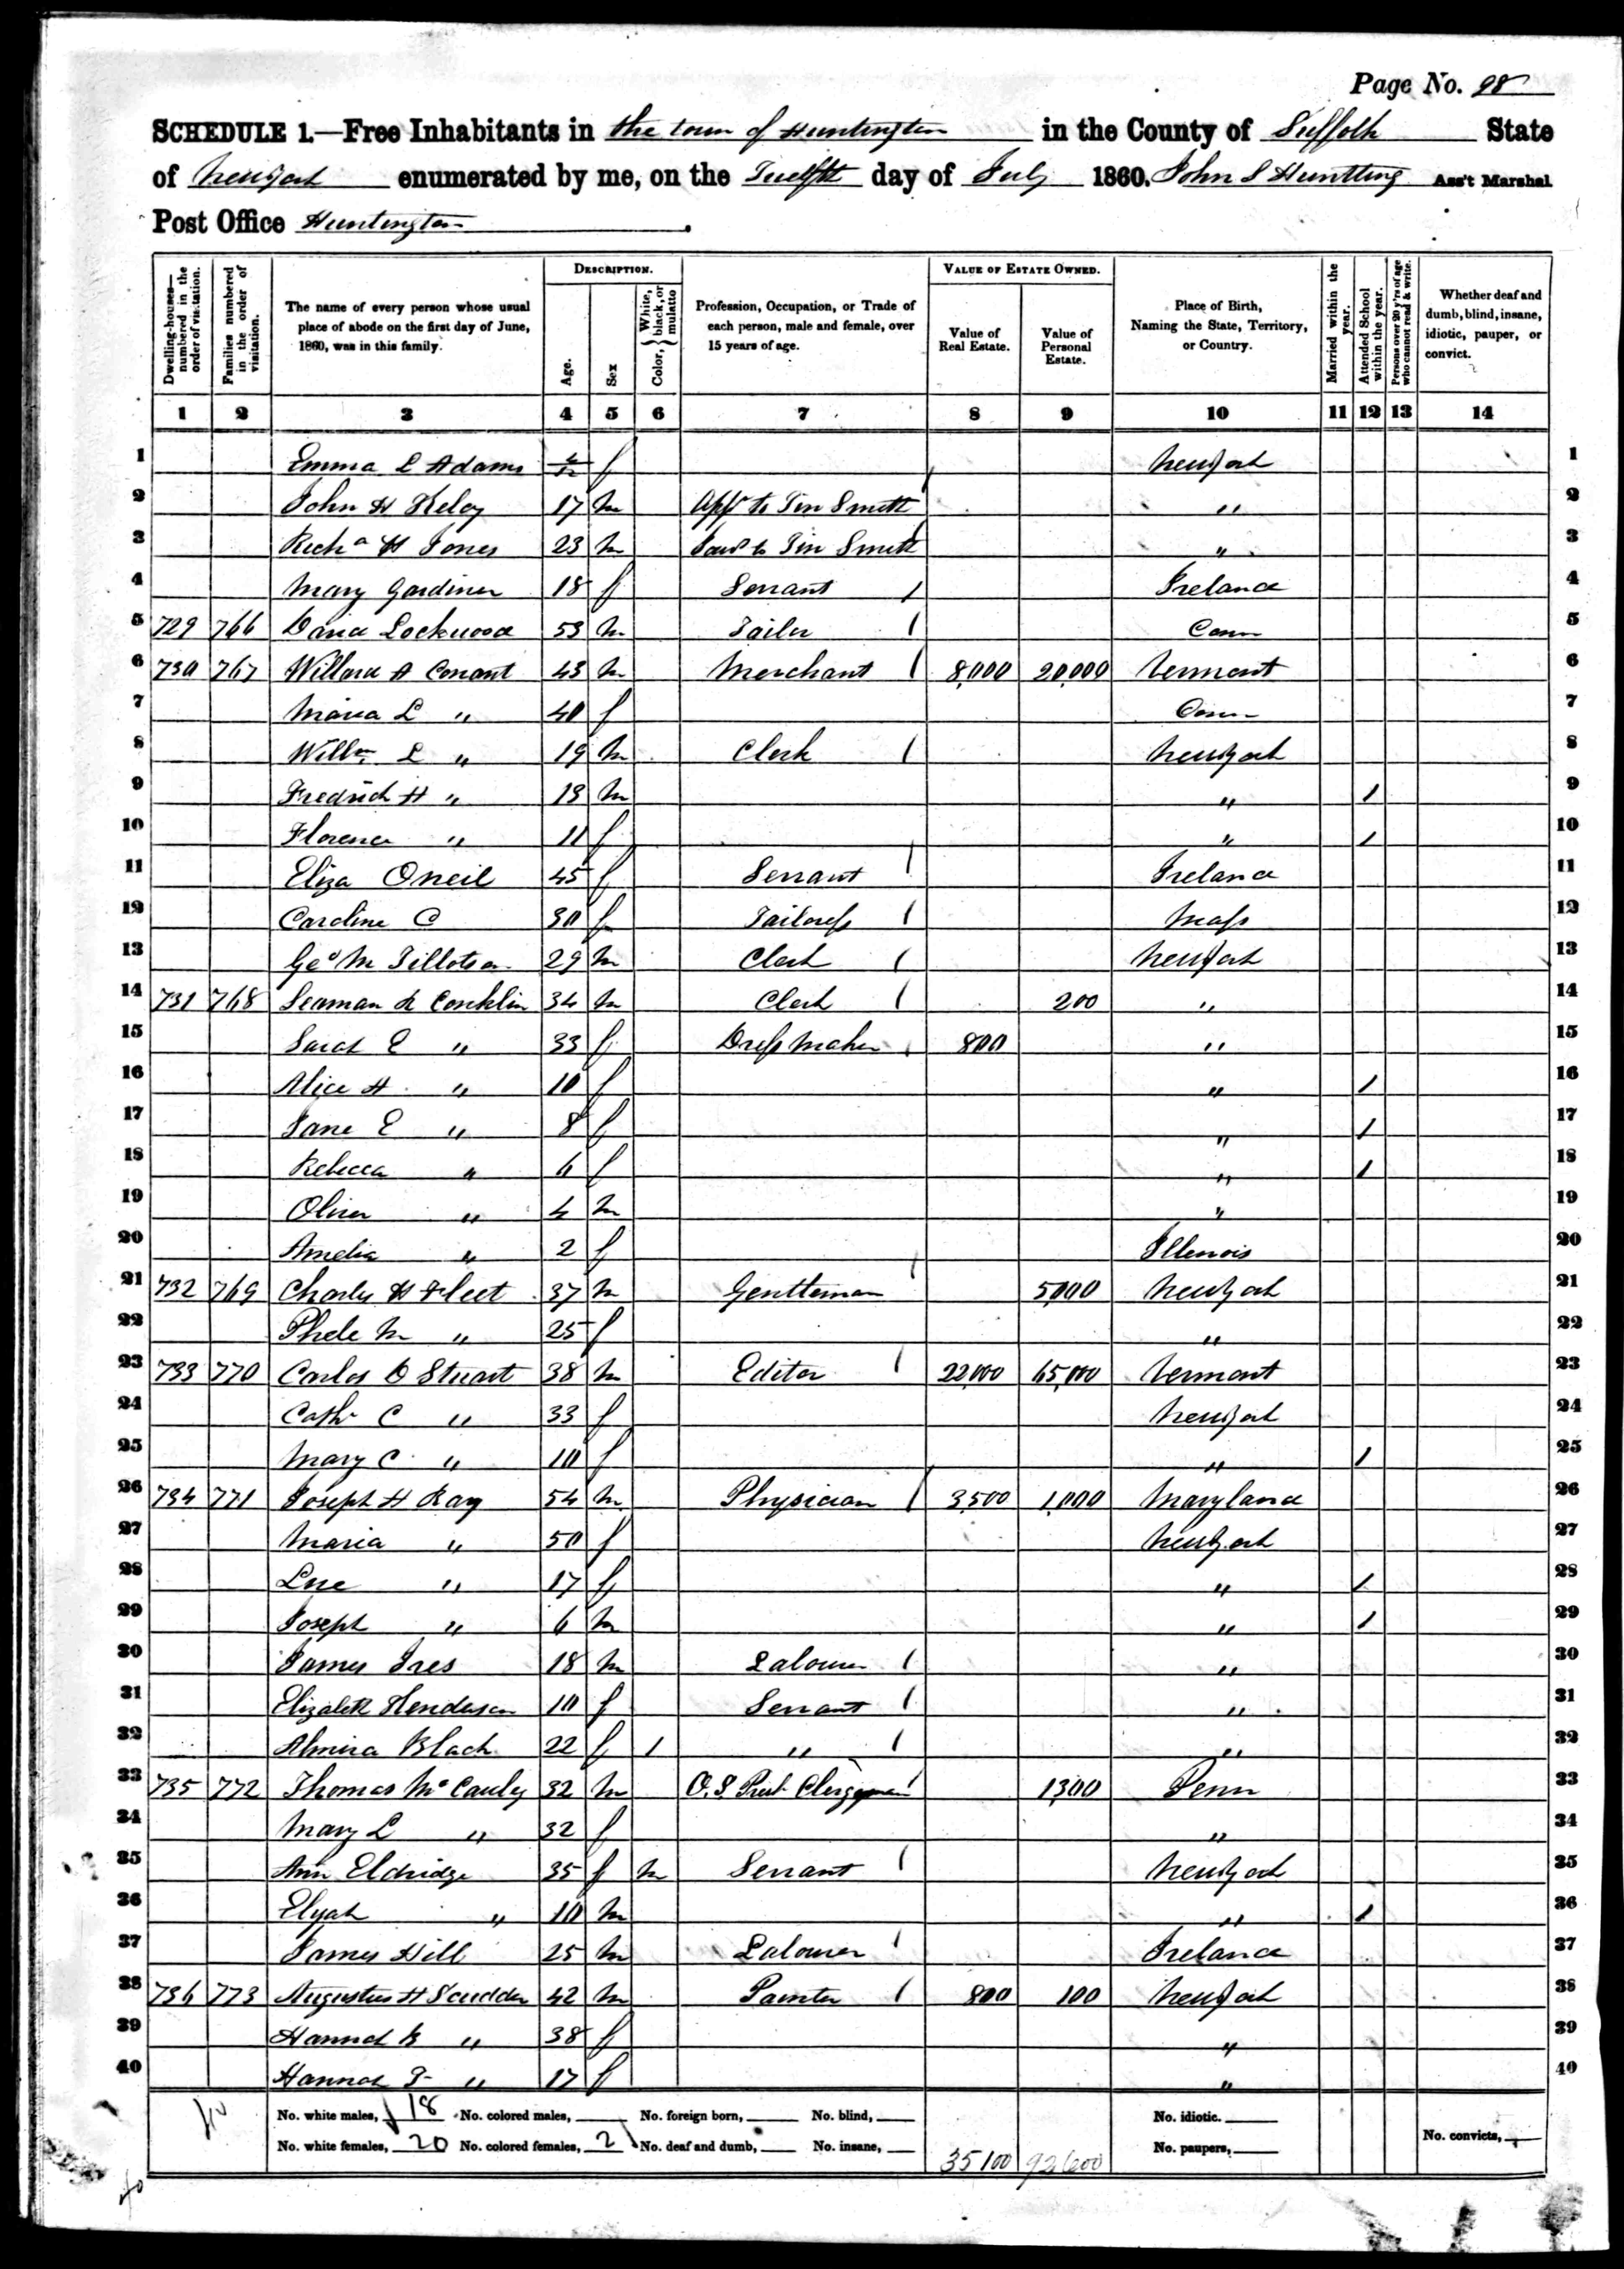 Page No. 98
SCHEDULE 1.—Free Inhabitants in the town of Huntington in the County of Suffolk State
of New York enumerated by me, on the Twelfth day of July 1860. John S Huntting Ass't Marshal
Post Office Huntington.
Dwelling-houses— numbered in the order of visitation.
Families numbered in the order of visitation.
The name of every person whose usual place of abode on the first day of June, 1860, was in this family.
DESCRIPTION.
Age.
Sex
Color, { White, black, or mulatto
Profession, Occupation, or Trade of each person, male and female, over 15 years of age.
VALUE OF ESTATE OWNED.
Value of Real Estate.
Value of Personal Estate.
Place of Birth, Naming the State, Territory, or Country.
Married within the year.
Attended School within the year.
Persons over 20 y'rs of age who cannot read & write.
Whether deaf and dumb, blind, insane, idiotic, pauper, or convict.
1 2 3 4 5 6 7 8 9 10 11 12 13 14
1 Emma L Adams f New York 1
2 John H 17 m App to Tin Smith " 2
3 Rich^a H Jones 23 m Tin Smith " 3
4 Mary Gardiner 18 f Servant / Ireland 4
5 729 766 David Lockwood 53 m Tailor / Conn 5
6 730 767 Willard A Conant 43 m Merchant / 8,000 20,000 Vermont 6
7 Maria L " 40 f Conn 7
8 Willm L " 19 m Clerk / New York 8
9 Fredrich H " 13 m " / 9
10 Florence " 11 f " / 10
11 Eliza Oneil 45 f Servant / Ireland 11
12 Caroline C 30 f Tailoress / Mass 12
13 Geo M Tillotson 29 m Clerk / New York 13
14 731 768 Seaman K Conklin 34 m Clerk / 200 " 14
15 Sarah E " 33 f Dress Maker / 800 " 15
16 Alice H " 10 f " / 16
17 Jane E " 8 f " / 17
18 Rebecca " 6 f " / 18
19 Oliver " 4 m " 19
20 Amelia " 2 f Illenois 20
21 732 769 Charles H Fleet 37 m Gentleman / 5,000 New York 21
22 Phebe M " 25 f " 22
23 733 770 Carlos D Stuart 38 m Editor / 22,000 65,000 Vermont 23
24 Cath C " 33 f New York 24
25 Mary C " 10 f " / 25
26 734 771 Joseph H Ray 54 m Physician / 3,500 1,000 Maryland 26
27 Maria " 50 f New York 27
28 " 17 f " / 28
29 Joseph " 6 m " / 29
30 James Ires 18 m Labourer / " 30
31 Elizabeth Henderson 10 f Servant / " 31
32 Almira Black 22 f 1 " / " 32
33 735 772 Thomas McCauley 32 m O.S. Presb Clergyman / 1,300 Penn 33
34 Mary L " 32 f " 34
35 Ann Eldridge 35 f m Servant / New York 35
36 Elijah " 10 m " / 36
37 James Hill 25 m Labourer / Ireland 37
38 736 773 Augustus H Scudder 42 m Painter / 800 100 New York 38
39 Hannah B " 38 f " 39
40 Hannah T " 17 f " 40
No. white males, 18 No. colored males, No. foreign born, No. blind, No. idiotic.
No. white females, 20 No. colored females, 2 No. deaf and dumb, No. insane, 35100 92600 No. paupers, No. convicts,